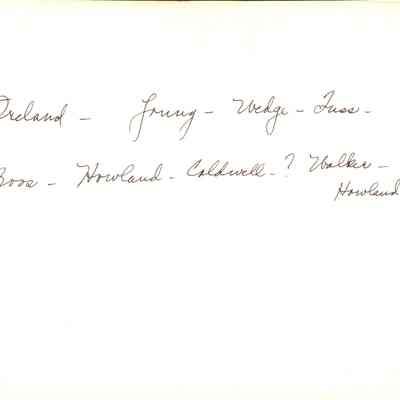 Ireland - Young - Wedge - Fuss -
Boos - Howland - Coldwell - ? Walker -
Howland